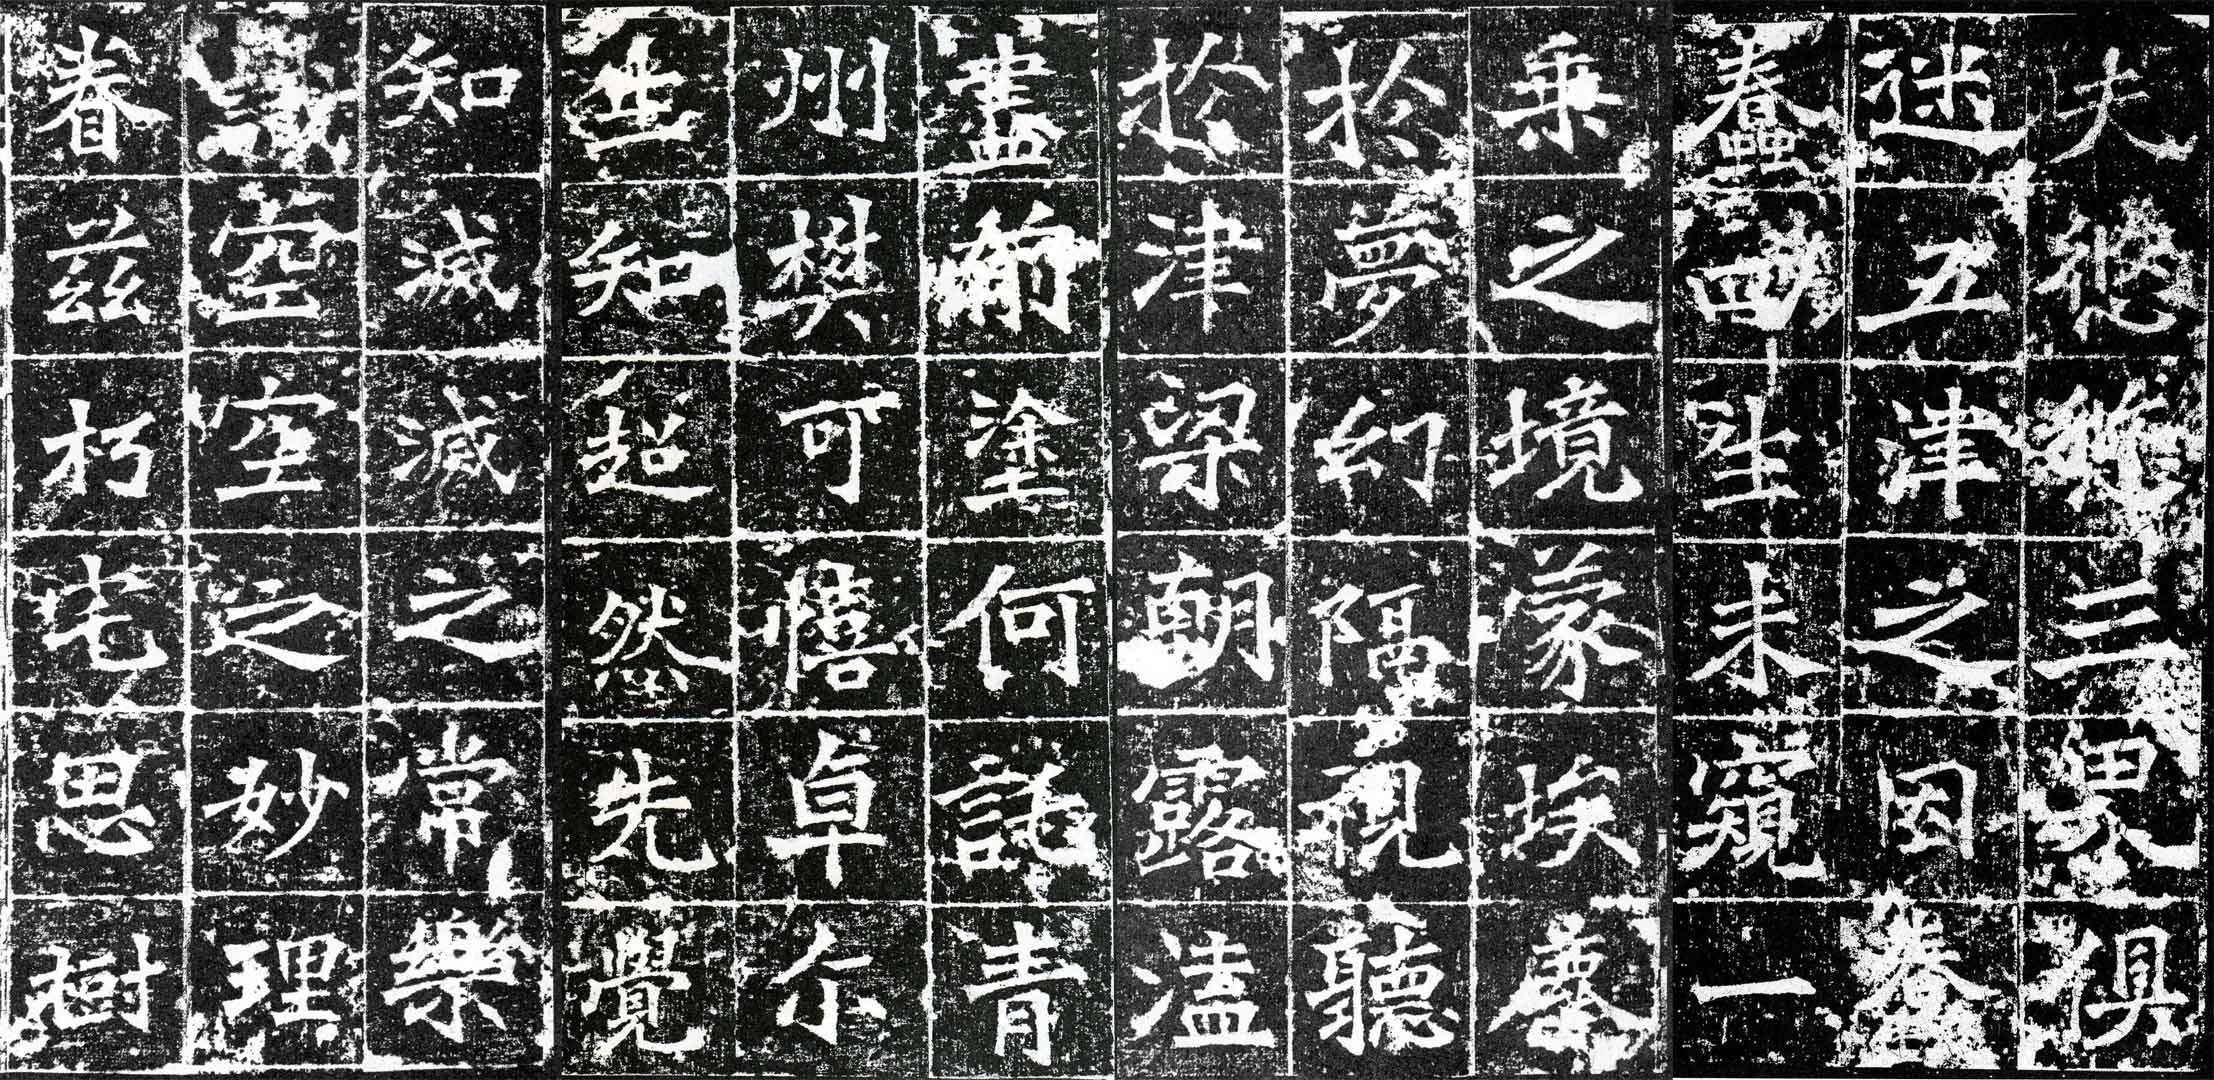 夫悠悠三界俱
迷五津之因蠢
蠢四生未窺一
乘之境蒙埃塵
於夢幻隔視聽
於津梁朝露溘
盡前塗何託青
州樊可憘卓尒
生知超然先覺
知滅滅之常樂
識空空之妙理
眷茲朽宅思樹